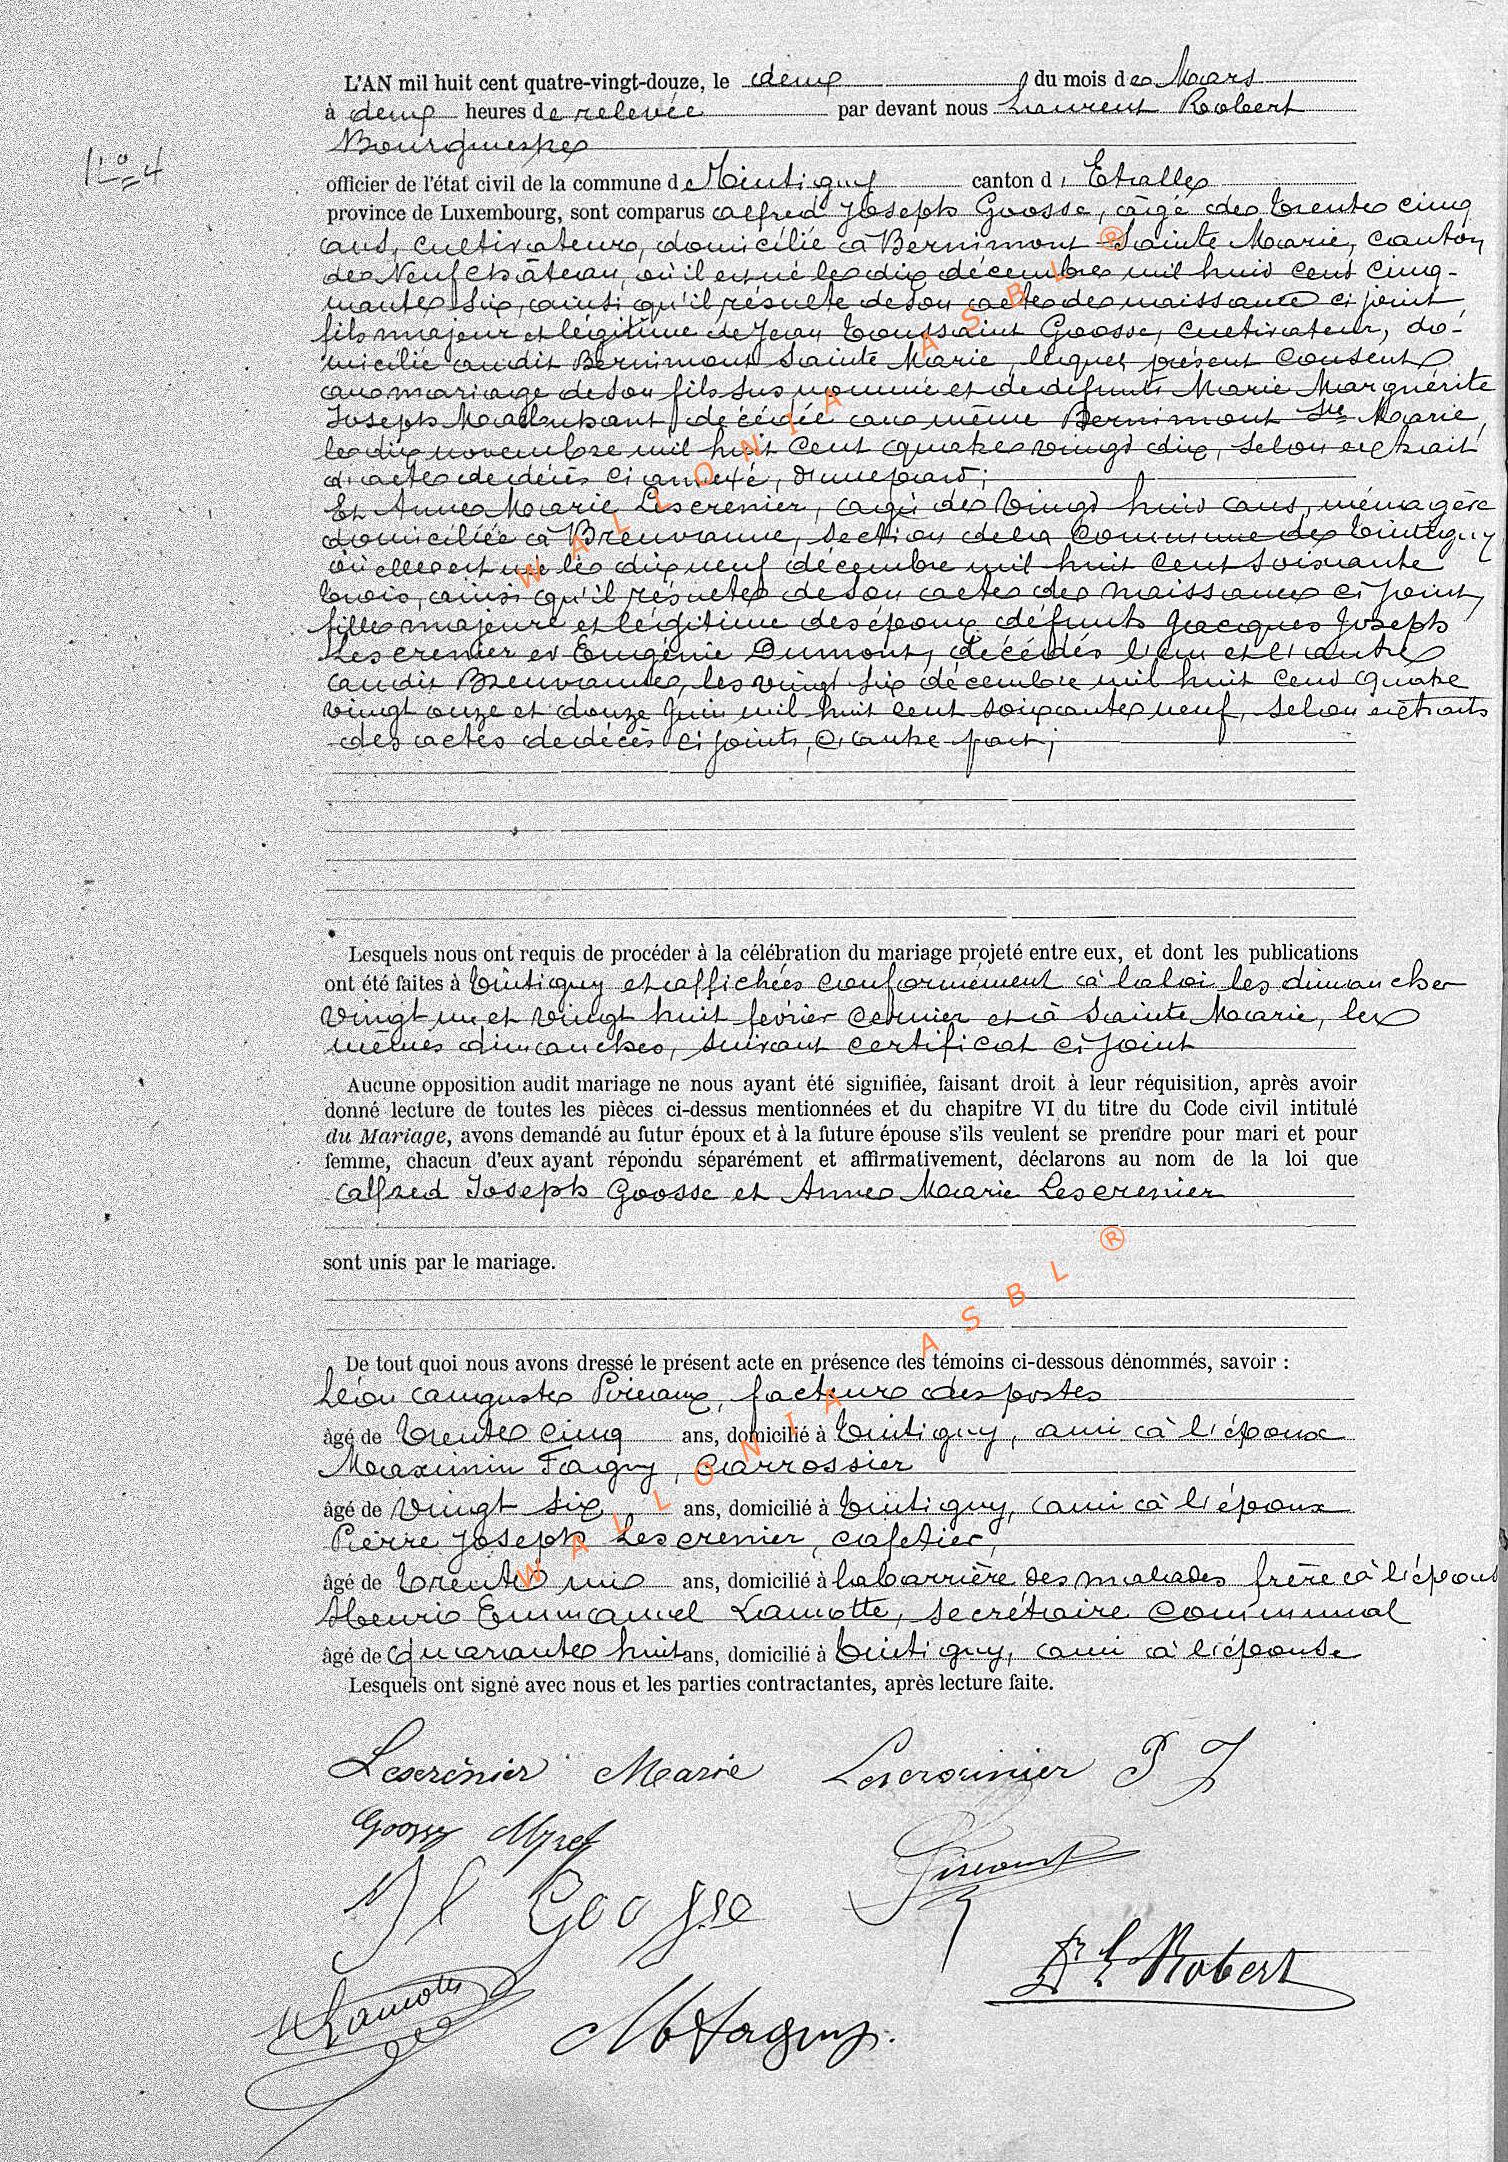 L'AN mil huit cent quatre-vingt-douze, le deux du mois de Mars
à deux heures de relevée par devant nous Laurent Robert
Bourgmestre
N° 4
officier de l'état civil de la commune de Tintigny canton d'Etalle
province de Luxembourg, sont comparus Alfred Joseph Goosse, âgé de trente cinq
ans, cultivateur, domicilié à Bernimont Sainte Marie, canton
de Neufchâteau, où il est né le dix décembre mil huit cent cinq-
uante six, ainsi qu'il résulte de son acte de naissance ci joint
fils majeur et légitime de Jean Toussaint Goosse, cultivateur, do-
micilié audit Bernimont Sainte Marie, lequel présent consent
au mariage de son fils sus nommé et de défunte Marie Marguérite
Joseph décédée au même Bernimont Ste Marie,
le dix novembre mil huit cent quatre vingt dix, selon extrait
d'acte de décès ci annexé, d'une part;
Et Anne Marie Lescrenier, âgée de vingt huit ans, ménagère
domiciliée à Breuvanne, section de la commune de Tintigny
où elle est née le dix neuf décembre mil huit cent soixante
trois, ainsi qu'il résulte de son acte de naissance ci joint,
fille majeure et légitime des époux défunts Jacques Joseph
Lescrenier et Eugénie Dumont, décédés l'un et l'autre
audit Breuvanne, les vingt six décembre mil huit cent quatre
vingt onze et douze Juin mil huit cent soixante neuf, selon extraits
des actes de décès ci joints, d'autre part;
Lesquels nous ont requis de procéder à la célébration du mariage projeté entre eux, et dont les publications
ont été faites à Tintigny et affichées conformément à la loi les dimanches
vingt un et vingt huit février dernier et à Sainte Marie, les
mêmes dimanches, suivant certificat ci joint
Aucune opposition audit mariage ne nous ayant été signifiée, faisant droit à leur réquisition, après avoir
donné lecture de toutes les pièces ci-dessus mentionnées et du chapitre VI du titre du Code civil intitulé
du Mariage, avons demandé au futur époux et à la future épouse s'ils veulent se prendre pour mari et pour
femme, chacun d'eux ayant répondu séparément et affirmativement, déclarons au nom de la loi que
Alfred Joseph Goosse et Anne Marie Lescrenier
sont unis par le mariage.
De tout quoi nous avons dressé le présent acte en présence des témoins ci-dessous dénommés, savoir :
Léon Auguste facteur des postes
âgé de trente cinq ans, domicilié à Tintigny, ami à l'époux
Maximin Fagny, carrossier
âgé de vingt six ans, domicilié à Tintigny, ami à l'époux
Pierre Joseph Lescrenier, cafetier,
âgé de trente un ans, domicilié à la barrière des malades frère à l'épouse
Henri Emmanuel Lamotte, secrétaire communal
âgé de quarante huit ans, domicilié à Tintigny, ami à l'épouse
Lesquels ont signé avec nous et les parties contractantes, après lecture faite.
Lescrénier Marie Lescrainier P J
Goosse Alfred
J t Goosse
Dr L Robert
H Lamotte
M Fagny.
WALLONIA ASBL ®
WALLONIA ASBL ®